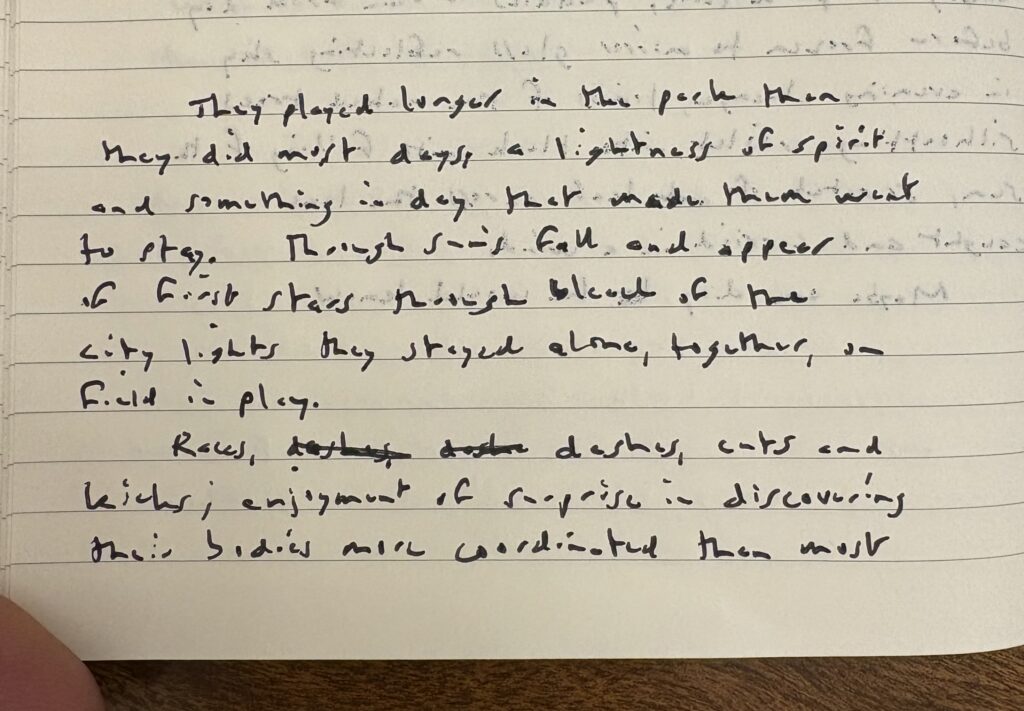 They played longer in the park than
they did most days, a lightness of spirit,
and something in day that made them want
to stay. Through sun's fall and appear
of first stars through bleach of the
city lights they stayed alone, together, on
field in play.
Races, dashes, dashe dashes, cuts and
kicks; enjoyment of surprise in discovering
their bodies more coordinated than most